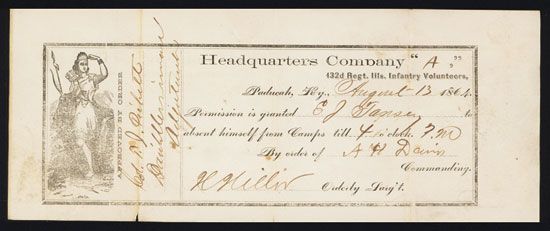 Headquarters Company "A",
132d Regt. Ills. Infantry Volunteers,
Paducah, Ky., August 13 1864.
Permission is granted E J Tansey to
absent himself from Camps till 4 o'clock P.M
By order of A H Davis
Commanding.
Orderly Serg't.
APPROVED BY ORDER
Col.